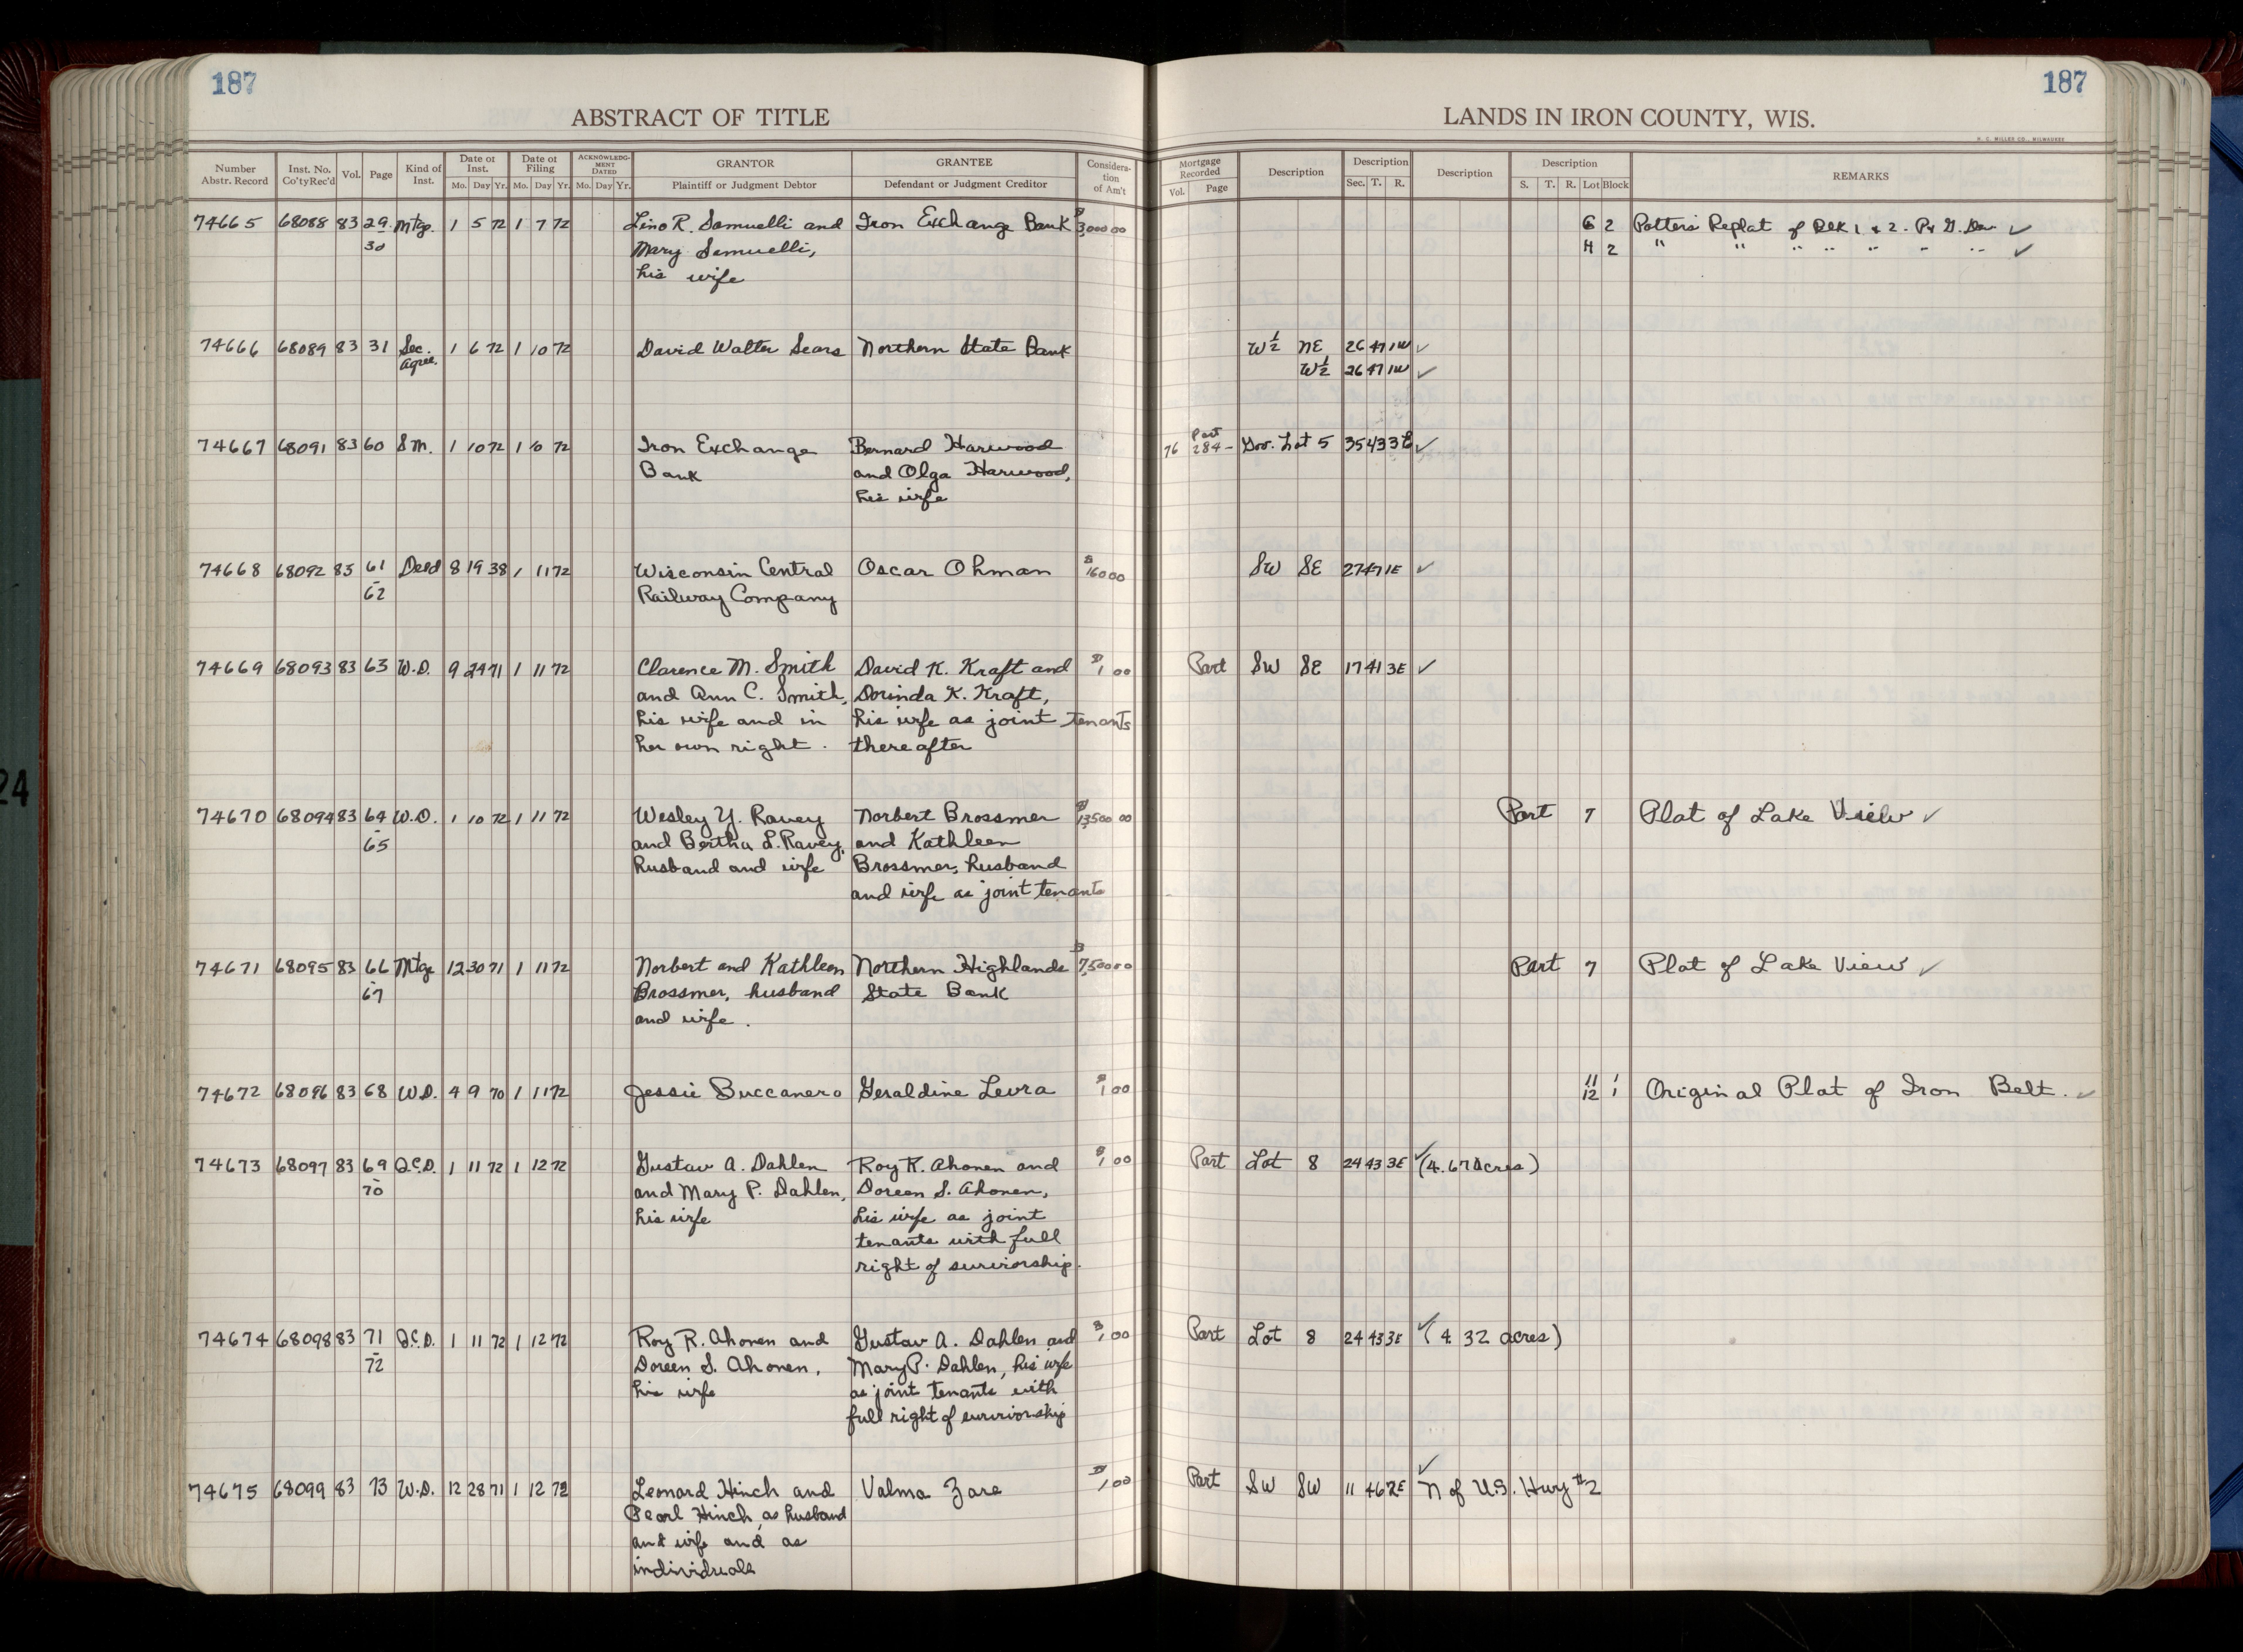 187
187
ABSTRACT OF TITLE
LANDS IN IRON COUNTY, WIS.
H. C. MILLER CO., MILWAUKEE
Number Abstr. Record Inst. No. Co'ty Rec'd Vol. Page Kind of Inst. Date of Inst. Mo. Day Yr. Date of Filing Mo. Day Yr. ACKNOWLEDGMENT DATED Mo. Day Yr. GRANTOR Plaintiff or Judgment Debtor GRANTEE Defendant or Judgment Creditor Consideration of Am't Mortgage Recorded Vol. Page Description Description Sec. T. R. Description Description S. T. R. Lot Block REMARKS
74665 68088 83 29 Mtge. 1 5 72 1 7 72 Lino R. Samuelli and Iron Exchange Bank $3000 00 G 2 Potters Replat of Blk 1 & 2 - ✓
30 Mary Samuelli, H 2 " " " " " " " ✓
his wife
74666 68089 83 31 Sec. 1 6 72 1 10 72 David Walter Sears Northern State Bank W½ NE 26 47 1W ✓
Agree. W½ 26 47 1W ✓
74667 68091 83 60 SM. 1 10 72 1 10 72 Iron Exchange Bernard Harwood 76 Part 284 - Gov. Lot 5 35 43 3E ✓
Bank and Olga Harwood,
his wife
74668 68092 83 61 Deed 8 19 38 1 11 72 Wisconsin Central Oscar Ohman $160 00 SW SE 27 47 1E ✓
-
62 Railway Company
74669 68093 83 63 W.D. 9 24 71 1 11 72 Clarence M. Smith David K. Kraft and $1 00 Part SW SE 17 41 3E ✓
and Ann C. Smith, Dorinda K. Kraft,
his wife and in his wife as joint tenants
her own right. thereafter
74670 68094 83 64 W.D. 1 10 72 1 11 72 Wesley Y. Ravey Norbert Brossmer $13500 00 Part 7 Plat of Lake View ✓
-
65 and Bertha L. Ravey, and Kathleen
husband and wife Brossmer, husband
and wife as joint tenants
74671 68095 83 66 Mtge 12 30 71 1 11 72 Norbert and Kathleen Northern Highlands $7,500 00 Part 7 Plat of Lake View ✓
-
67 Brossmer, husband State Bank
and wife.
74672 68096 83 68 W.D. 4 9 70 1 11 72 Jessie Buccanero Geraldine Levra $1 00 11 1
12 1 Original Plat of Iron Belt. ✓
74673 68097 83 69 Q.C.D. 1 11 72 1 12 72 Gustav A. Dahlen Roy R. Ahonen and $1 00 Part Lot 8 24 43 3E ✓ (4.67 Acres)
-
70 and Mary P. Dahlen, Doreen S. Ahonen,
his wife his wife as joint
tenants with full
right of survivorship.
74674 68098 83 71 Q.C.D. 1 11 72 1 12 72 Roy R. Ahonen and Gustav A. Dahlen and $1 00 Part Lot 8 24 43 3E ✓ (4.32 acres)
-
72 Doreen S. Ahonen, Mary P. Dahlen, his wife
his wife as joint tenants with
full right of survivorship
74675 68099 83 73 W.D. 12 28 71 1 12 72 Leonard Hinch and Valma Zara $1 00 Part SW SW 11 46 2E ✓ N of U.S. Hwy #2
Pearl Hinch, as husband
and wife and as
individuals
24